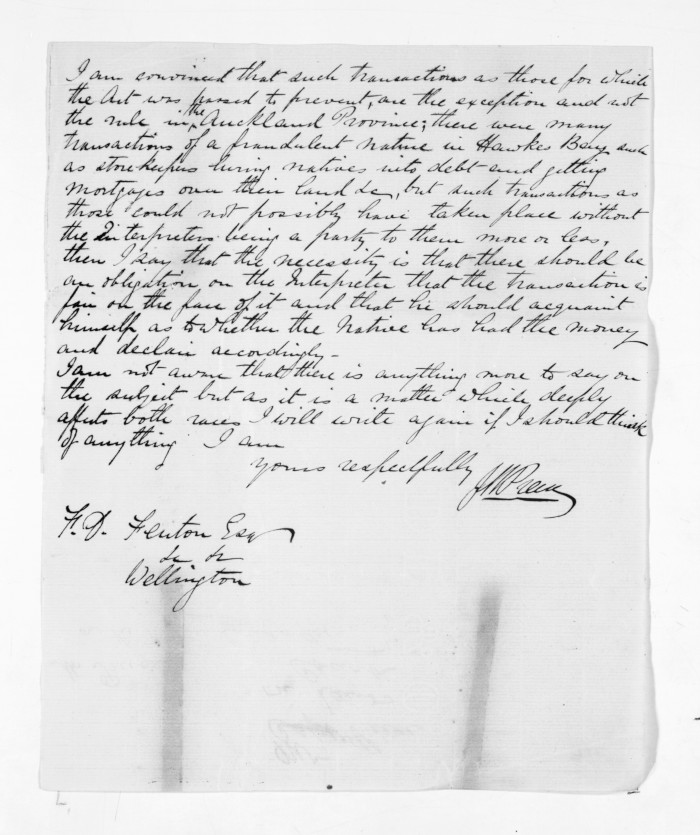 I am convinced that such transactions as those for which
the Act was passed to prevent, are the exception and not
the rule in the Auckland Province; there were many
transactions of a fraudulent nature in Hawkes Bay such
as store-keepers luring natives into debt and getting
mortgages over their land &c, but such transactions as
those could not possibly have taken place without
the Interpreters being a party to them more or less,
then I say that the necessity is that there should be
an obligation on the Interpreter that the transaction is
fair on the face of it and that he should acquaint
himself as to whether the Native has had the money
and declair accordingly -
I am not aware that there is anything more to say on
the subject but as it is a matter which deeply
affects both races I will write again if I should think
of anything I am
yours respectfully
JW Preece
F. D. Fenton Esq
&c &c
Wellington